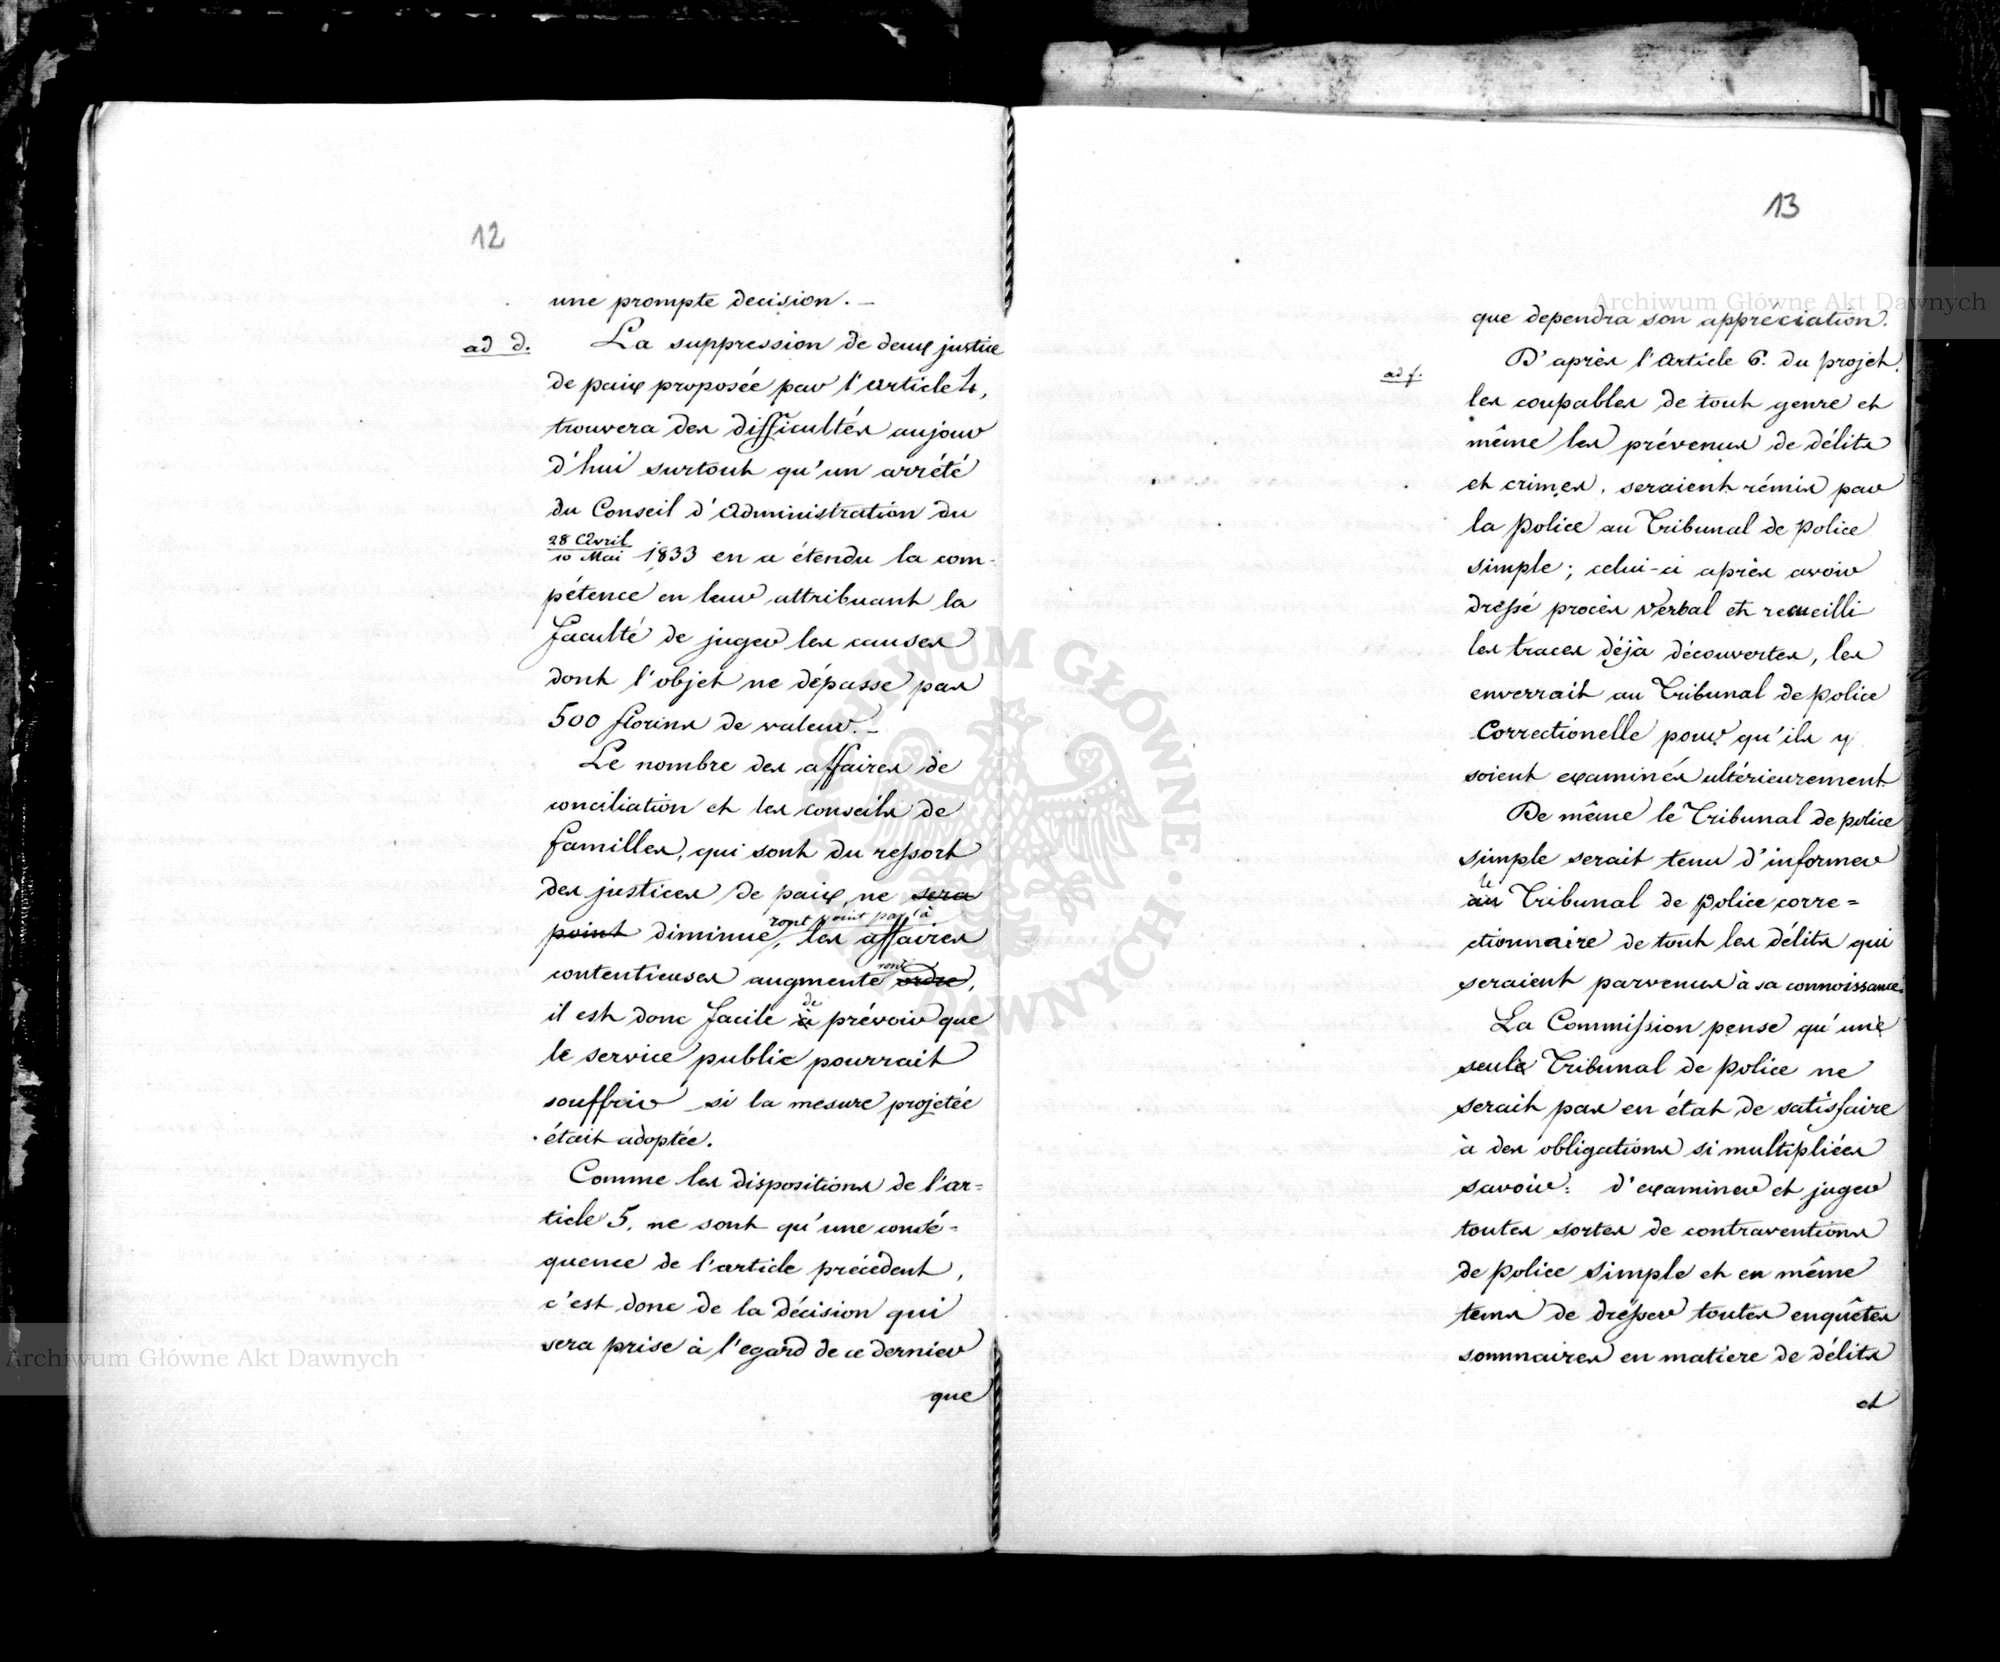 12
une prompte decision. —
ad d. La suppression de deux justice
de paix proposée par l'article 4,
trouvera des difficultés aujour
d'hui surtout qu'un arrété
du Conseil d'Administration du
28 Avril
10 Mai 1833 en a étendu la com-
pétence en leur attribuant la
faculté de juger les causes
dont l'objet ne dépasse pas
500 florins de valeur. —
Le nombre des affaires de
conciliation et les conseils de
familles, qui sont du ressort
des justices de paix, ne sera
ront point par là
point diminue, les affaires
ront
contentieuses augmente
de
il est donc facile à prévoir que
le service public pourrait
souffrir si la mesure projetée
était adoptée.
Comme les dispositions de l'ar=
ticle 5. ne sont qu'une consé=
quence de l'article précédent,
c'est donc de la décision qui
sera prise à l'egard de ce dernier
que
13
que dependra son appréciation.
ad f. D'après l'Article 6. du projet.
les coupables de tout genre et
même les prévenus de délits
et crimes, seraient rémis par
la Police au Tribunal de Police
simple; celui-ci après avoir
dressé procès verbal et recueilli
les traces déjà découvertes, les
enverrait au Tribunal de police
Correctionelle pour qu'ils y
soient examinés ultérieurement.
De même le Tribunal de police
simple serait tenu d'informer
le
au Tribunal de police corre=
ctionnaire de tout les délits qui
seraient parvenus à sa connoissance.
La Commission pense qu'une
seule Tribunal de Police ne
serait pas en état de satisfaire
à des obligations si multipliées
savoir: d'examiner et juger
toutes sortes de contraventions
de police simple et en même
tems de dresser toutes enquêtes
sommaires en matiere de délits
et
Archiwum Główne Akt Dawnych
Archiwum Główne Akt Dawnych
ARCHIWUM GŁÓWNE AKT DAWNYCH